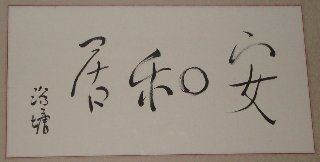 安和居